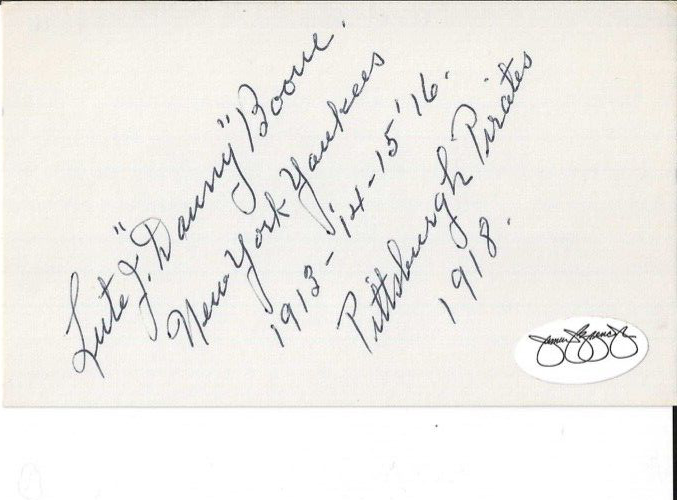 Lute J. "Danny" Boone.
New York Yankees
1913 - '14 - 15 '16.
Pittsburgh Pirates
1918.
James Spence Jr